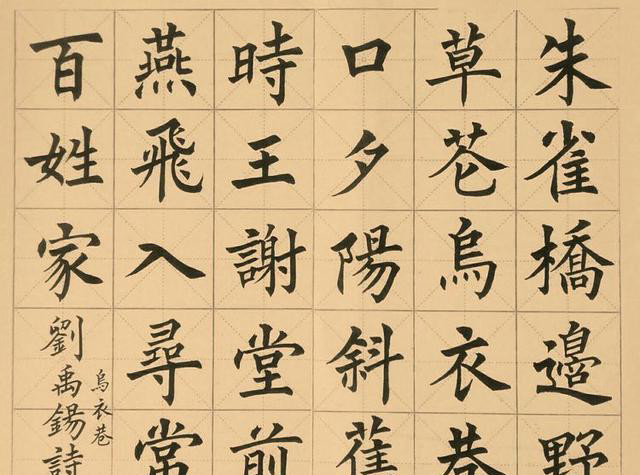 朱雀橋邊野
草花烏衣巷
口夕陽斜舊
時王謝堂前
燕飛入尋常
百姓家
烏衣巷
劉禹錫詩